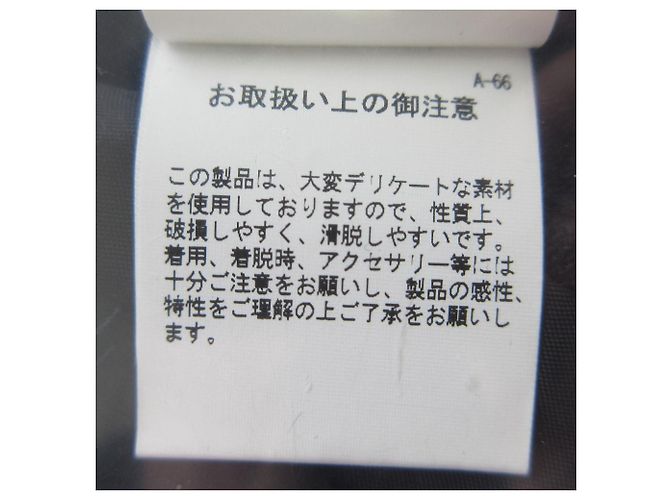 A-66
お取扱い上の御注意
この製品は、大変デリケートな素材
を使用しておりますので、性質上、
破損しやすく、滑脱しやすいです。
着用、着脱時、アクセサリー等には
十分ご注意をお願いし、製品の感性、
特性をご理解の上ご了承をお願いし
ます。